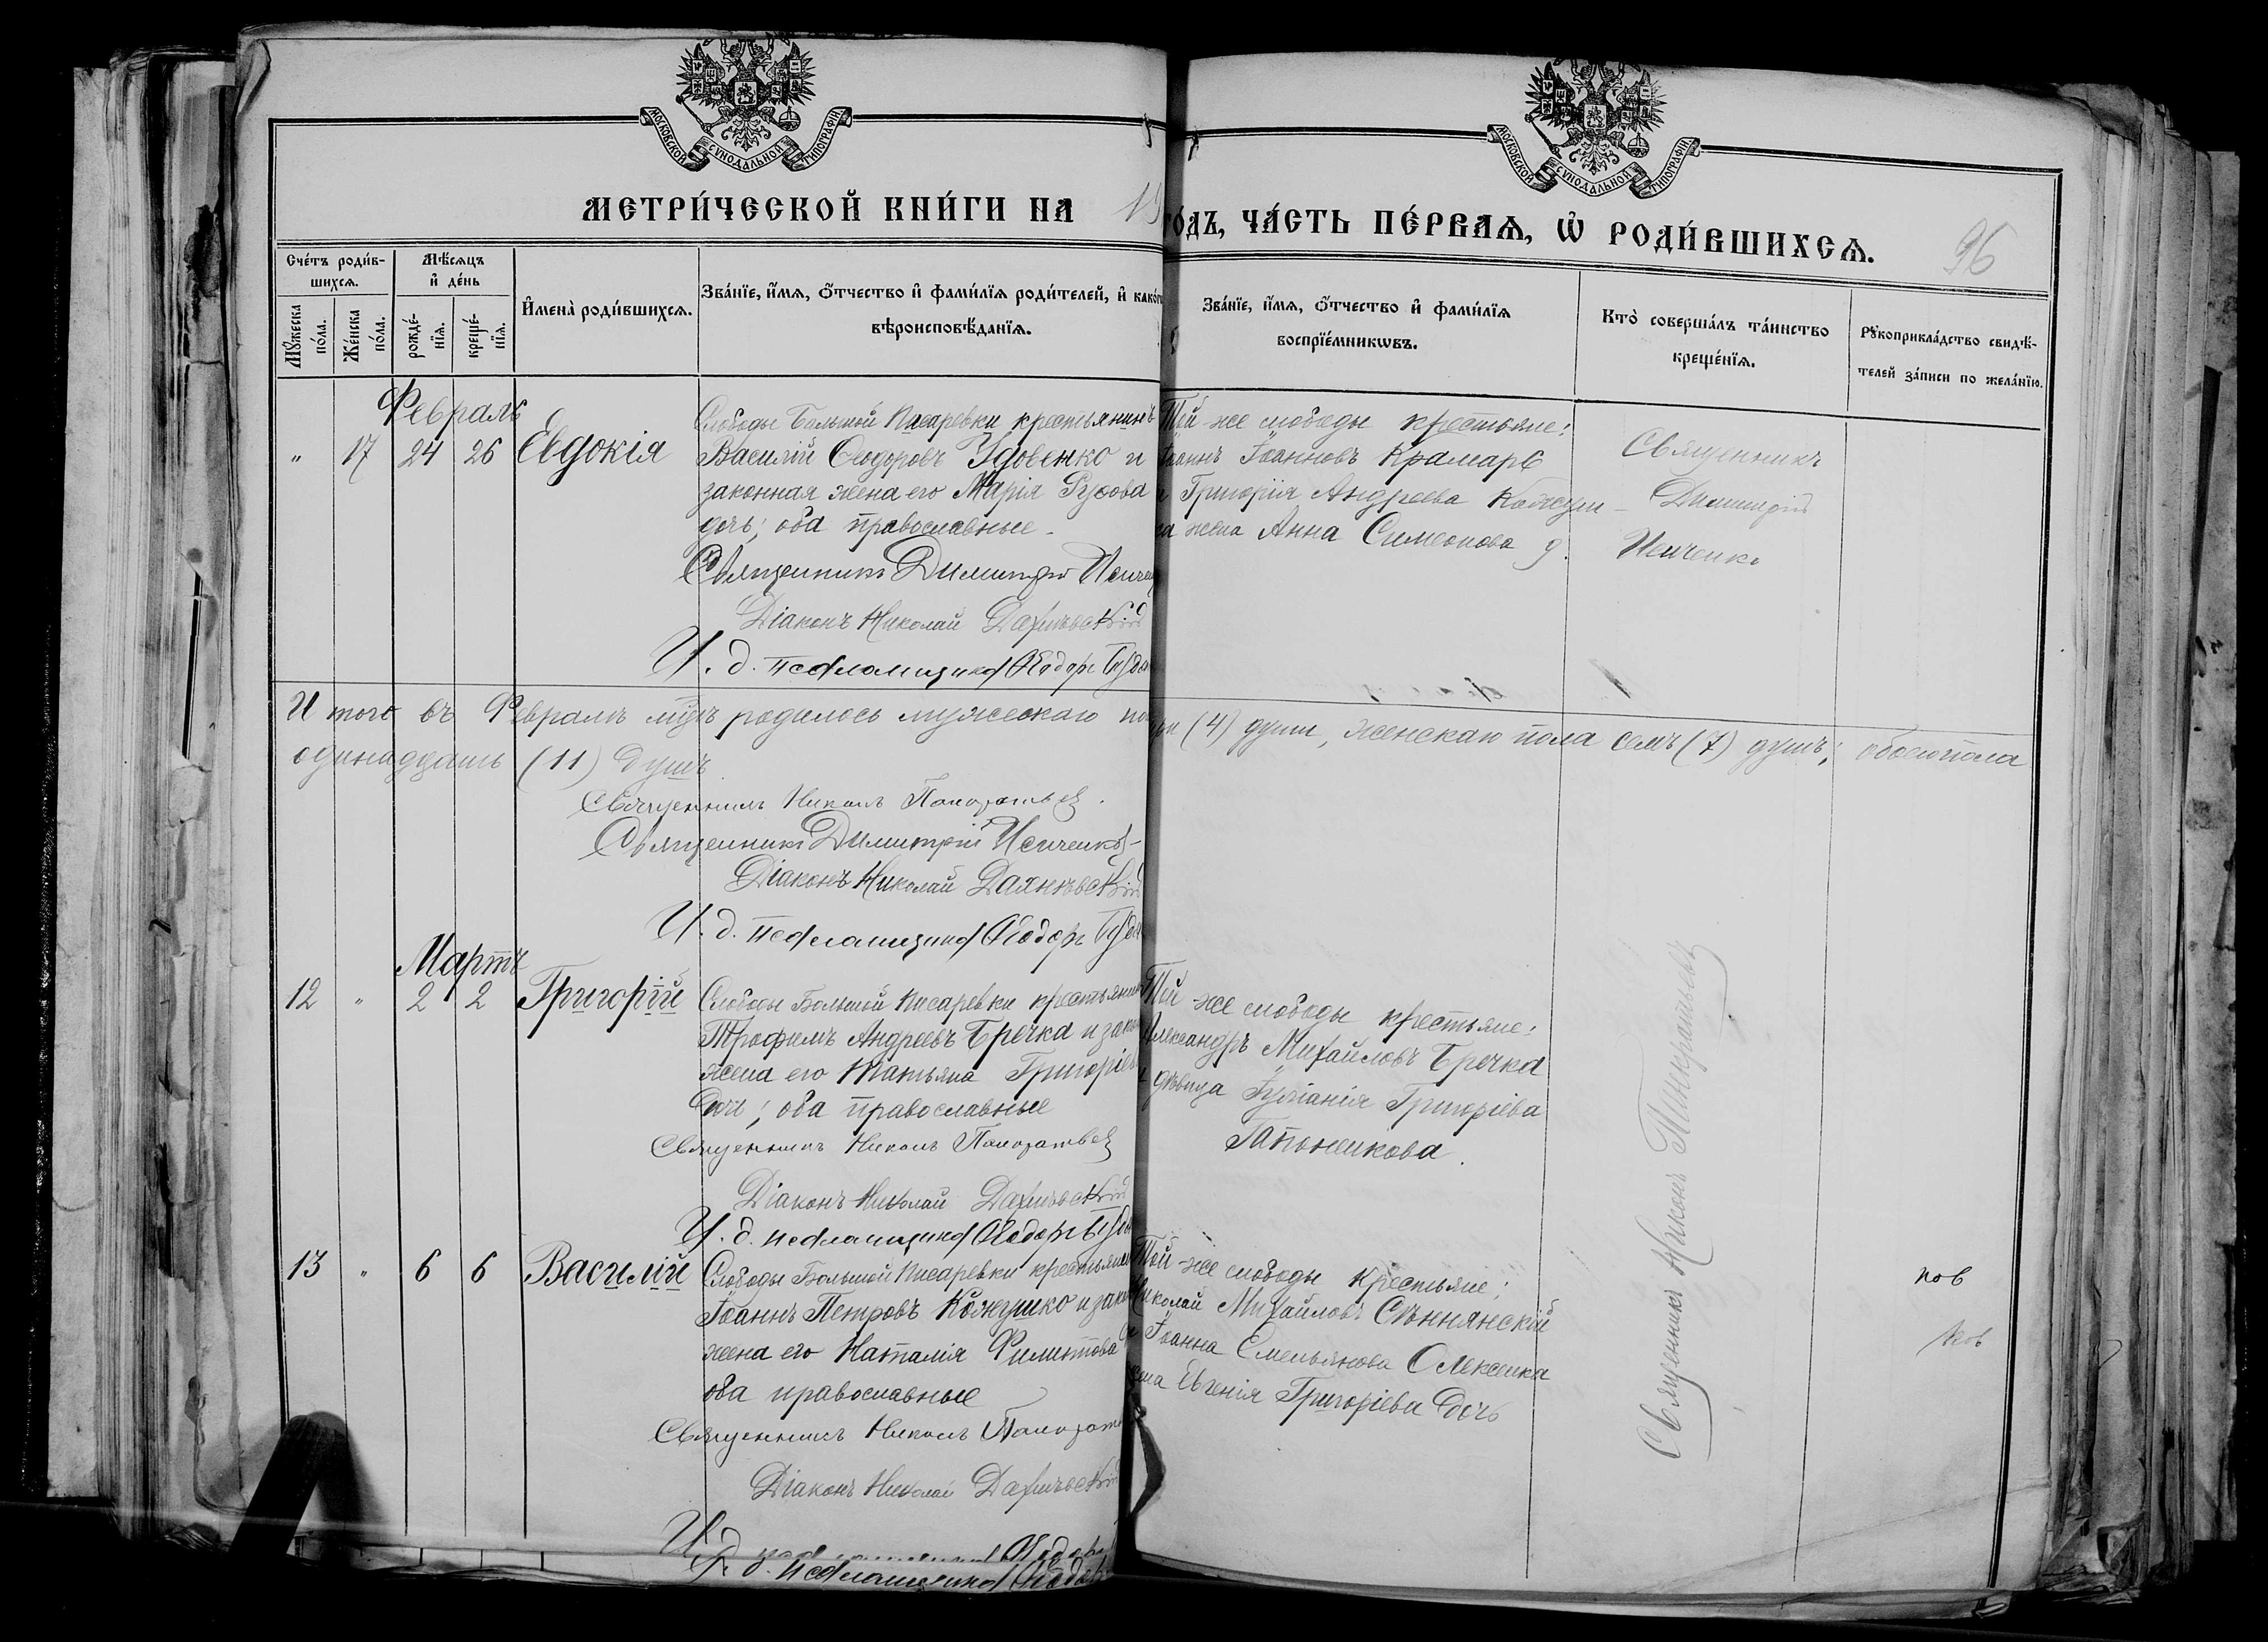 МОСКОВСКОЙ СѴНОДАЛЬНОЙ ТИПОГРАФІИ
МОСКОВСКОЙ СѴНОДАЛЬНОЙ ТИПОГРАФІИ
МЕТРИ́ЧЕСКОЙ КНИ́ГИ НА 19
ГО́ДЪ, ЧА́СТЬ ПЕ́РВАѦ, Ѡ҆ РОДИ́ВШИХСѦ.
96
Сче́тъ роди́в-
шихсѧ.
Мѣ́сѧцъ
и҆ де́нь
Мꙋ́жеска
по́ла.
Же́нска
по́ла.
рожде́-
нїѧ.
креще́-
нїѧ.
И҆мена̀ роди́вшихсѧ.
Зва́нїе, и҆́мѧ, ѻ҆́тчество и҆ фами́лїѧ роди́телей, и҆ како́гѡ
вѣроисповѣ́данїѧ.
Зва́нїе, и҆́мѧ, ѻ҆́тчество и҆ фами́лїѧ
воспрїе́мникѡвъ.
Кто̀ соверша́лъ та́инство
креще́нїѧ.
Рꙋкоприкла́дство свидѣ́-
телей за́писи по жела́нїю.
Февраль
" 17 24 26 Евдокія
Слободы Большой Писаревки крестьянинъ
Василій Ѳеодоровъ Удовенко и
законная жена его Марія
дочь; оба православные
Священникъ Димитрій
Діаконъ Николай
И. д. псаломщика Ѳеодоръ
Той-же слободы крестьяне:
Іоаннъ Іоанновъ Крамарь
и Григорія Андреева
жена Анна Симеонова д.
Священникъ
Димитрій
Итого въ Февралѣ м-цѣ родилось мужескаго
(4) души, женскаго пола семь (7) душъ; обоего пола
одинадцать (11) душъ
Священникъ Никонъ Панкратьев
Священникъ Димитрій
Діаконъ Николай
И. д. псаломщика Ѳеодоръ
Мартъ
12 " 2 2 Григорій
Слободы Большой Писаревки крестьянинъ
Трофимъ Андреевъ Бречка и закон
жена его Татьяна Григоріев
дочь; оба православные
Священникъ Никонъ Панкратьев
Діаконъ Николай
И. д. псаломщика Ѳеодоръ
Той-же слободы крестьяне:
Александръ Михайловъ Бречка
и дѣвица Іуліанія Григоріева
Гапонникова.
13 " 6 6 Василій
Слободы Большой Писаревки крестьянин
Іоаннъ Петровъ Кожушко и закон
жена его Наталія Филиппова
оба православные
Священникъ Никонъ
Діаконъ Николай
И. д. псаломщика Ѳеодоръ
Той-же слободы крестьяне:
Николай Михайловъ Сѣннянскій
и Іоанна Емельянова Олексенка
жена Евгенія Григоріева дочь
Священникъ Никонъ Панкратьевъ